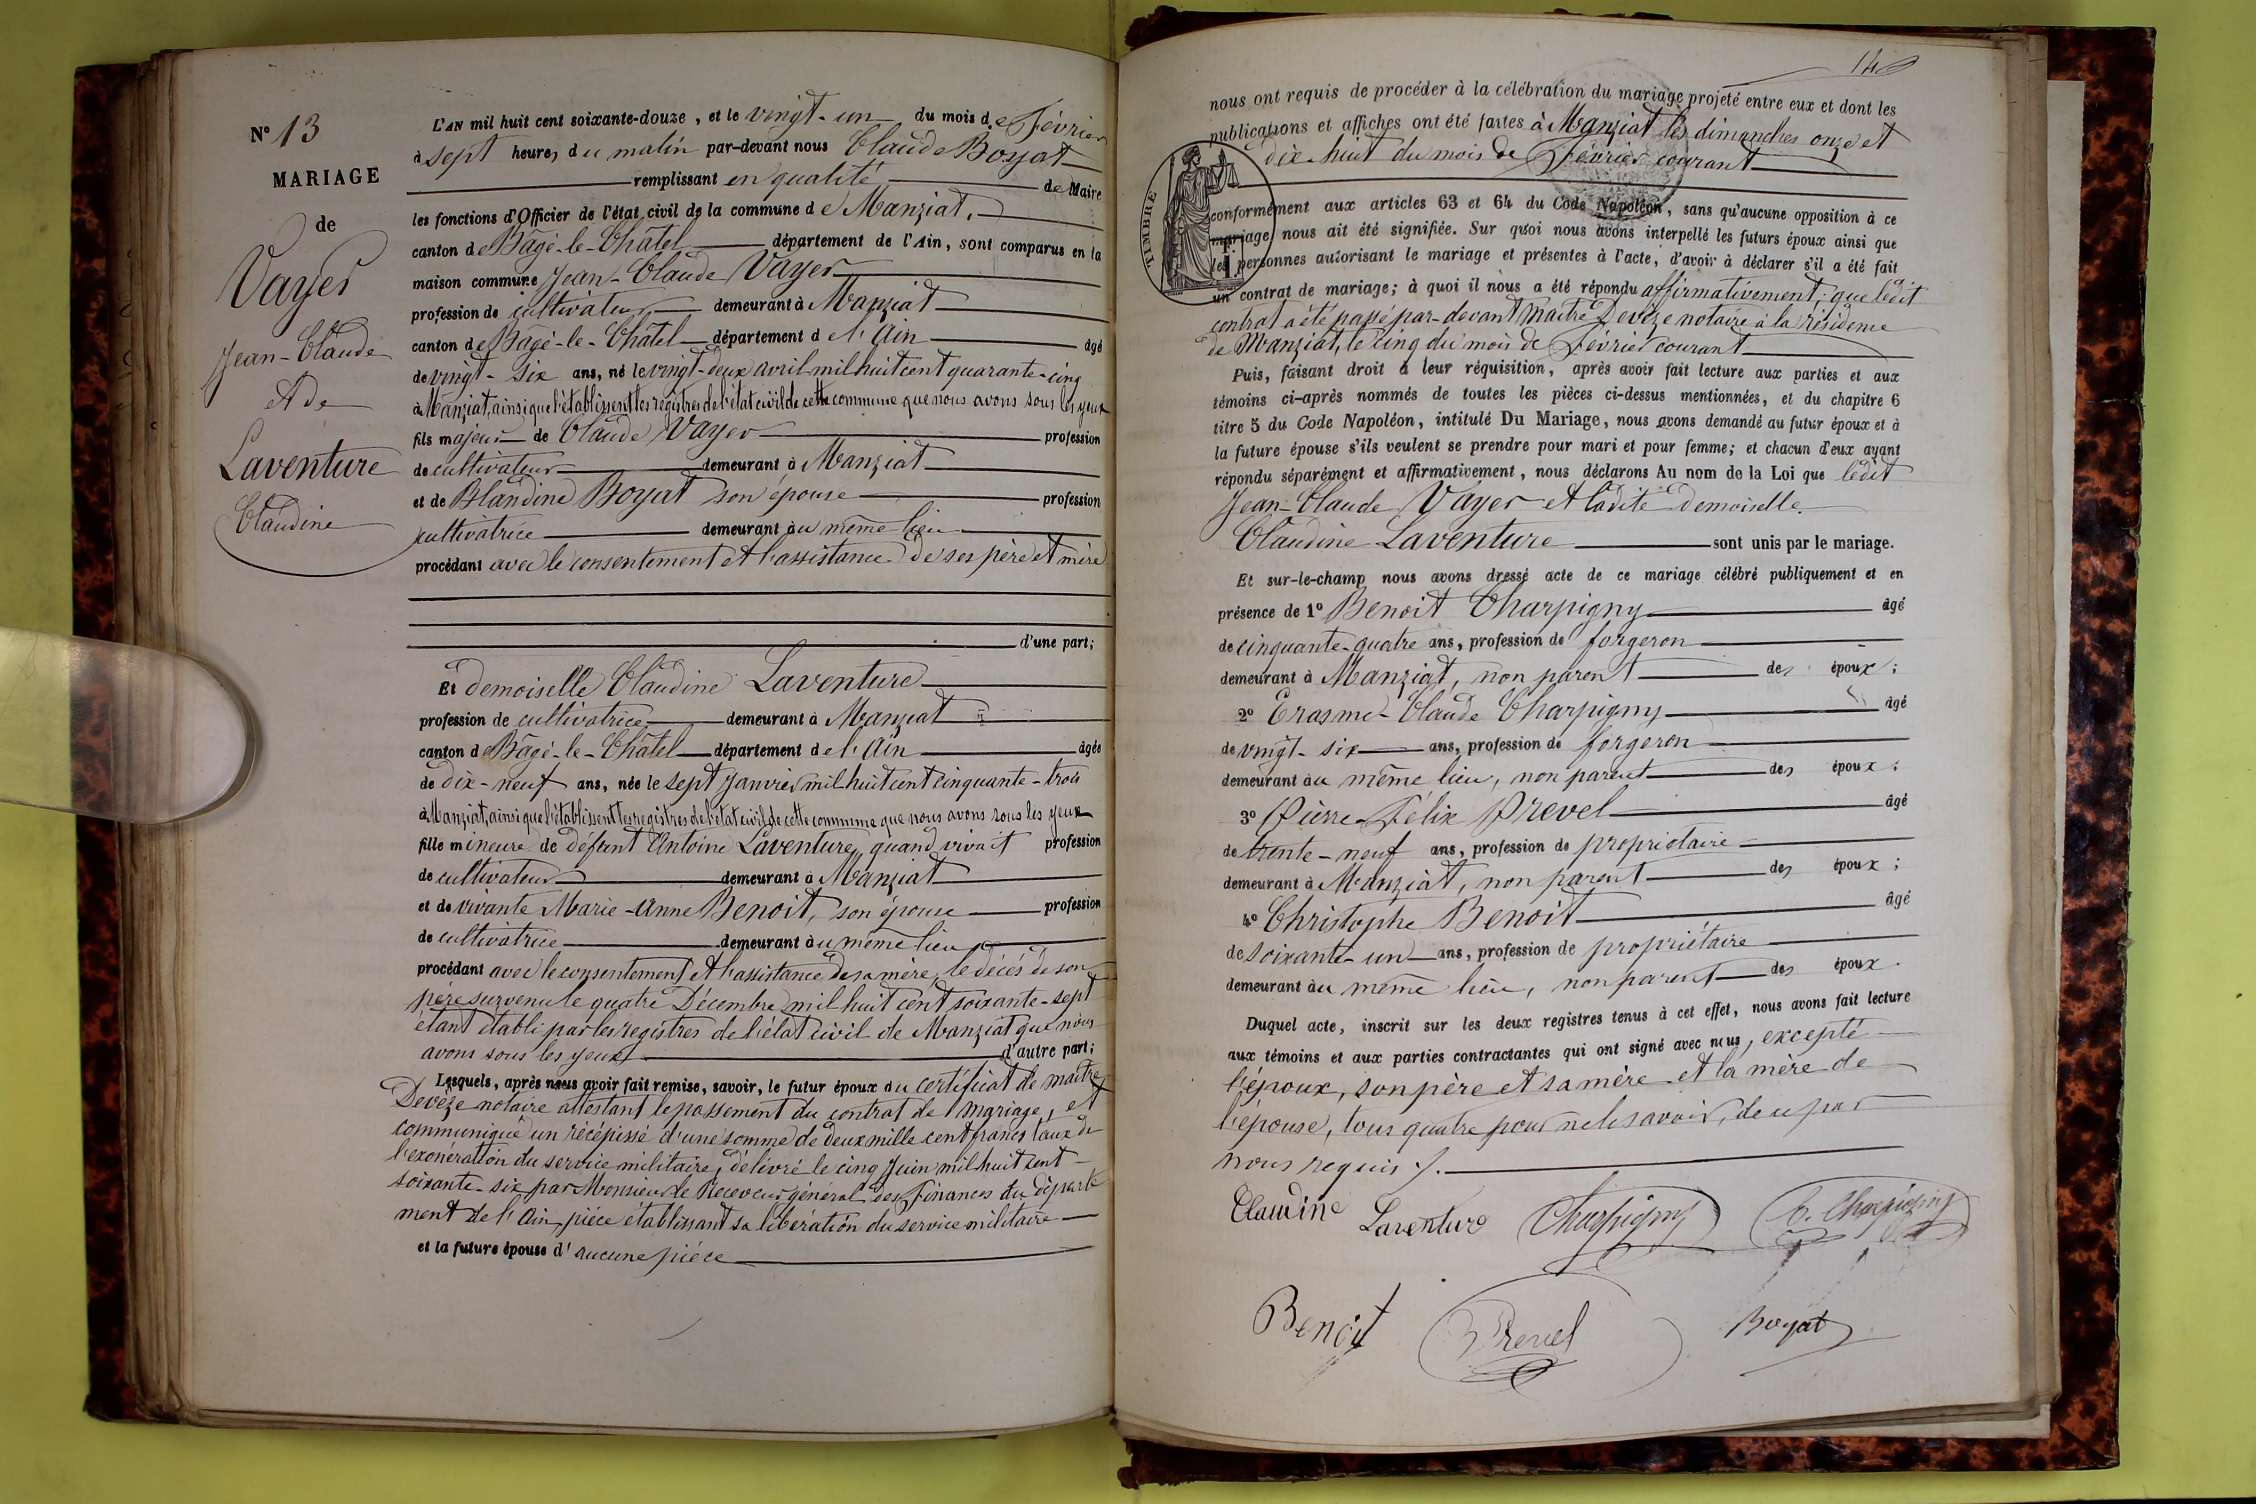 N° 13
MARIAGE
de
Vayer
Jean-Claude
Et de
Laventure
Claudine
L'AN mil huit cent soixante-douze, et le vingt-un du mois de Février
à sept heures du matin par-devant nous Claude Boyat
remplissant en qualité de Maire
les fonctions d'Officier de l'état civil de la commune de Manziat,
canton de Bâgé-le-Châtel département de l'Ain, sont comparus en la
maison commune Jean-Claude Vayer
profession de cultivateur demeurant à Manziat
canton de Bâgé-le-Châtel département de l'Ain âgé
de vingt-six ans, né le vingt-deux avril mil huit cent quarante-cinq
à Manziat, ainsi que l'établissent les registres de l'état civil de cette commune que nous avons sous les yeux
fils majeur de Claude Vayer profession
de cultivateur demeurant à Manziat
et de Blandine Boyat son épouse profession
cultivatrice demeurant au même lieu
procédant avec le consentement et l'assistance de ses père et mère
d'une part;
Et demoiselle Claudine Laventure
profession de cultivatrice demeurant à Manziat
canton de Bâgé-le-Châtel département de l'Ain âgée
de dix-neuf ans, née le sept Janvier mil huit cent cinquante-trois
à Manziat, ainsi que l'établissent les registres de l'état civil de cette commune que nous avons sous les yeux
fille mineure de défunt Antoine Laventure, quand vivait profession
de cultivateur demeurant à Manziat
et de vivante Marie-Anne Benoit, son épouse profession
de cultivatrice demeurant au même lieu
procédant avec le consentement et l'assistance de sa mère, le décès de son
père survenu le quatre Décembre mil huit cent soixante-sept
étant établi par les registres de l'état civil de Manziat que nous
avons sous les yeux d'autre part;
Lesquels, après nous avoir fait remise, savoir, le futur époux du certificat de maître
Devèze notaire attestant le passement du contrat de mariage, et
communiqué un récépissé d'une somme de deux mille cent francs taux de
l'exonération du service militaire, délivré le cinq Juin mil huit cent
soixante-six par Monsieur le Receveur général des Finances du départe
ment de l'Ain, pièce établissant sa libération du service militaire
et la future épouse d'aucune pièce
14
nous ont requis de procéder à la célébration du mariage projeté entre eux et dont les
publications et affiches ont été faites à Manziat les dimanches onze et
dix-huit du mois de Février courant
TIMBRE
conformément aux articles 63 et 64 du Code Napoléon, sans qu'aucune opposition à ce
mariage nous ait été signifiée. Sur quoi nous avons interpellé les futurs époux ainsi que
les personnes autorisant le mariage et présentes à l'acte, d'avoir à déclarer s'il a été fait
un contrat de mariage; à quoi il nous a été répondu affirmativement; que ledit
contrat a été passé par-devant maître Devèze notaire à la résidence
de Manziat, le cinq du mois de Février courant
Puis, faisant droit à leur réquisition, après avoir fait lecture aux parties et aux
témoins ci-après nommés de toutes les pièces ci-dessus mentionnées, et du chapitre 6
titre 5 du Code Napoléon, intitulé Du Mariage, nous avons demandé au futur époux et à
la future épouse s'ils veulent se prendre pour mari et pour femme; et chacun d'eux ayant
répondu séparément et affirmativement, nous déclarons Au nom de la Loi que ledit
Jean-Claude Vayer et ladite demoiselle
Claudine Laventure sont unis par le mariage.
Et sur-le-champ nous avons dressé acte de ce mariage célébré publiquement et en
présence de 1° Benoit Charpigny âgé
de cinquante-quatre ans, profession de forgeron
demeurant à Manziat, non parent des époux;
2° Erasme-Claude Charpigny âgé
de vingt-six ans, profession de forgeron
demeurant au même lieu, non parent des époux;
3° Pierre-Félix Prevel âgé
de trente-neuf ans, profession de propriétaire
demeurant à Manziat, non parent des époux;
4° Christophe Benoit âgé
de soixante-un ans, profession de propriétaire
demeurant au même lieu, non parent des époux.
Duquel acte, inscrit sur les deux registres tenus à cet effet, nous avons fait lecture
aux témoins et aux parties contractantes qui ont signé avec nous, excepté
l'époux, son père et sa mère et la mère de
l'épouse, tous quatre pour ne le savoir, de ce par
nous requis ./.
Claudine Laventure Charpigny C. Charpigny
Benoit Prevel Boyat